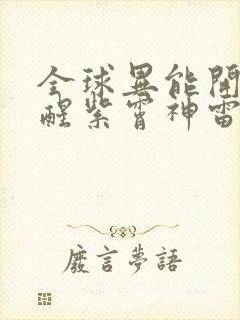 全球異能開
醒紫霄神雷
廢言夢語